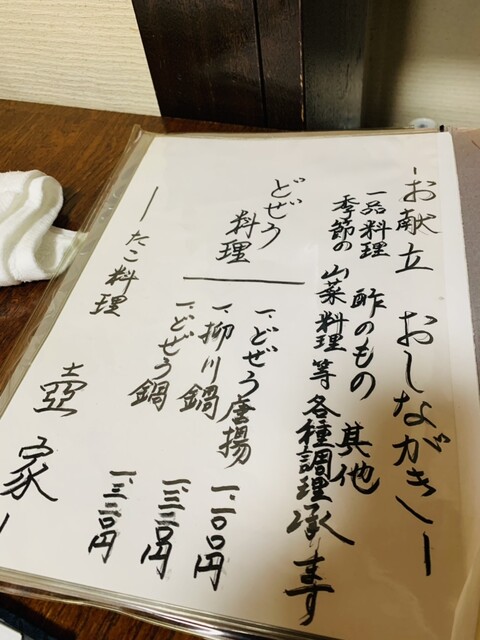 -お献立 おしながき-
一品料理 酢のもの 其他
季節の山菜料理等各種調理承ります
どぜう料理
一、どぜう唐揚 一、二〇〇円
一、柳川鍋 一、三二〇円
一、どぜう鍋 一、三二〇円
たこ料理
壺家